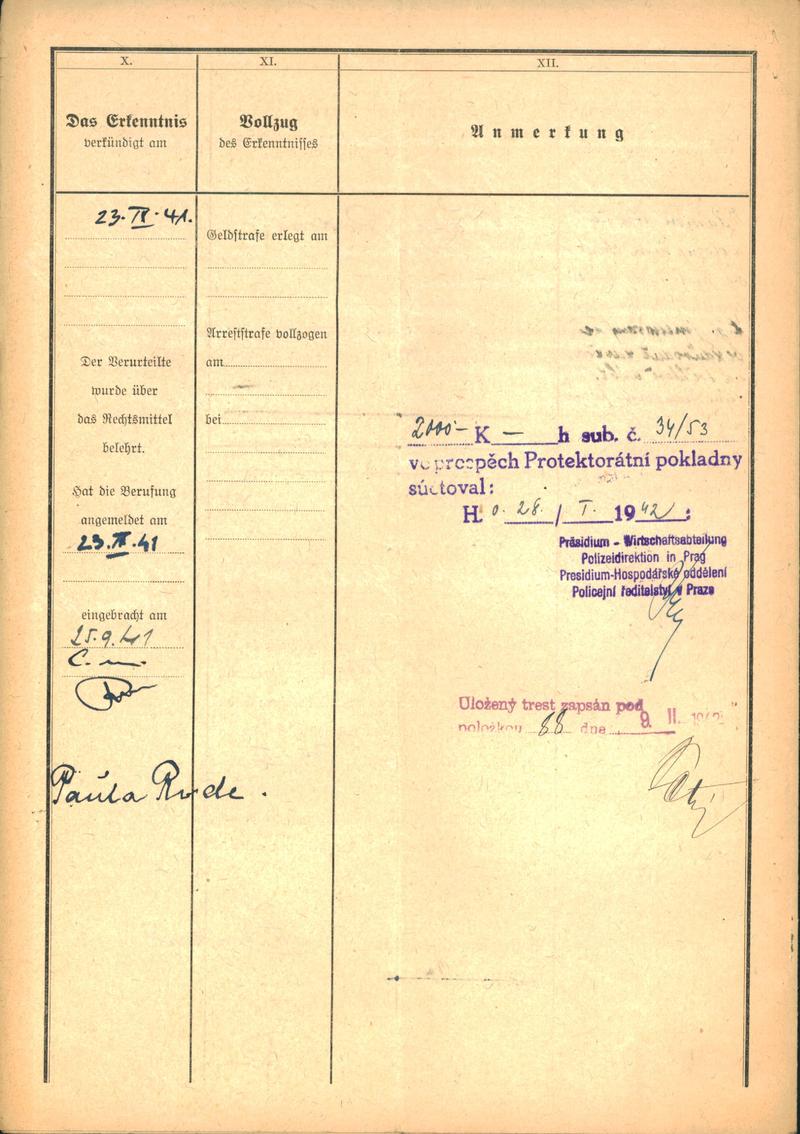 X.
Das Erkenntnis
verkündigt am
23. IX. 41.
Der Verurteilte
wurde über
das Rechtsmittel
belehrt.
Hat die Berufung
angemeldet am
23. IX. 41
eingebracht am
25. 9. 41
Paula Rude.
XI.
Vollzug
des Erkenntnisses
Geldstrafe erlegt am
Arreststrafe vollzogen
am
bei
XII.
Anmerkung
2000 – K — h sub. č. 34/53
ve prospěch Protektorátní pokladny
súčtoval:
H. o. 28. / I. 1942 :
Präsidium - Wirtschaftsabteilung
Polizeidirektion in Prag
Presidium-Hospodářské oddělení
Policejní ředitelství v Praze
Uložený trest zapsán pod
položkou 88 dne 9. II. 1942